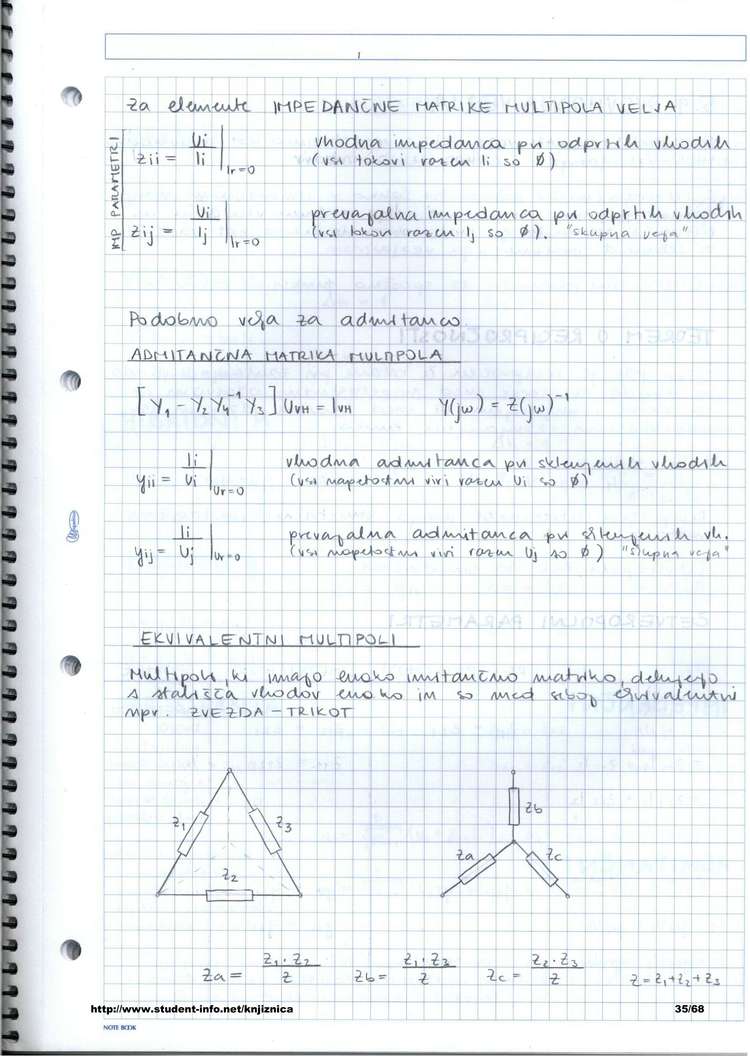 Za elemente IMPEDANČNE MATRIKE MULTIPOLA VELJA
IMP PARAMETRI
zii = Ui / Ii | Ir=0 vhodna impedanca pri odprtih vhodih
(vsi tokovi razen Ii so ∅)
zij = Ui / Ij | Ir=0 prevajalna impedanca pri odprtih vhodih
(vsi tokovi razen Ij so ∅). "skupna veja"
Podobno velja za admitanco.
ADMITANČNA MATRIKA MULTIPOLA
[Y1 - Y2 Y4⁻¹ Y3] UVH = IVH Y(jω) = Z(jω)⁻¹
yii = Ii / Ui | Ur=0 vhodna admitanca pri sklenjenih vhodih
(vsi napetostni viri razen Ui so ∅)
yij = Ii / Uj | Ur=0 prevajalna admitanca pri sklenjenih vh.
(vsi napetostni viri razen Uj so ∅) "skupna veja"
EKVIVALENTNI MULTIPOLI
Multipoli, ki imajo enako imitančno matriko, delujejo
s stališča vhodov enako in so med seboj ekvivalentni
npr. ZVEZDA - TRIKOT
Z1 Z3
Z2
Zb
Za Zc
Za = Z1·Z2 / Z Zb = Z1·Z3 / Z Zc = Z2·Z3 / Z Z = Z1+Z2+Z3
http://www.student-info.net/knjiznica 35/68
NOTE BOOK